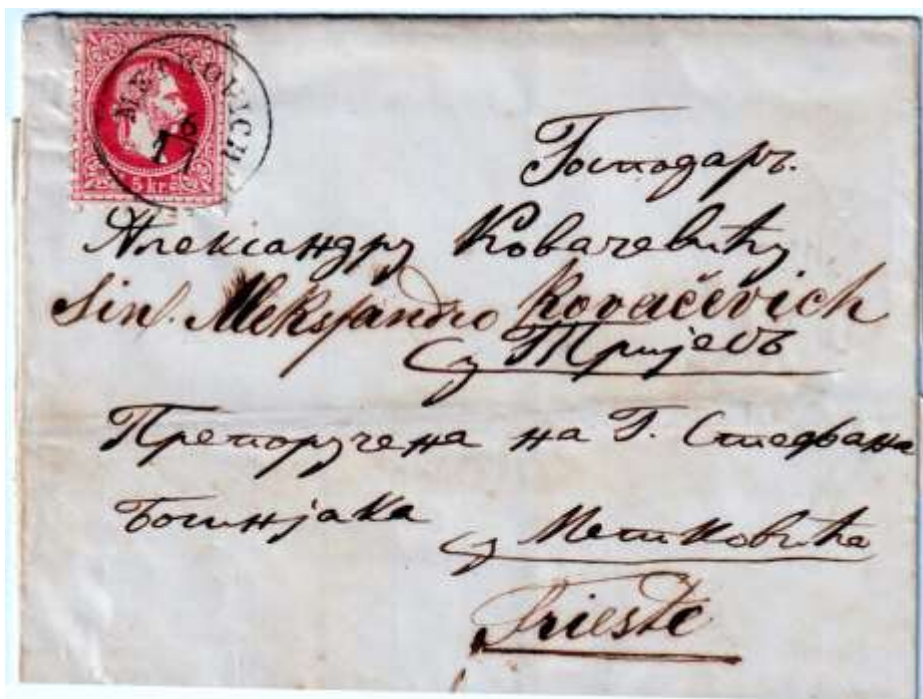 METKOVICH
6
17
5 kr.
Господаръ.
Александру Ковачевићу
Sin. Aleksandro Kovačevich
у Тријесъ
Препоручена на Г. Стефана
Бошњака
у Метковића
Trieste